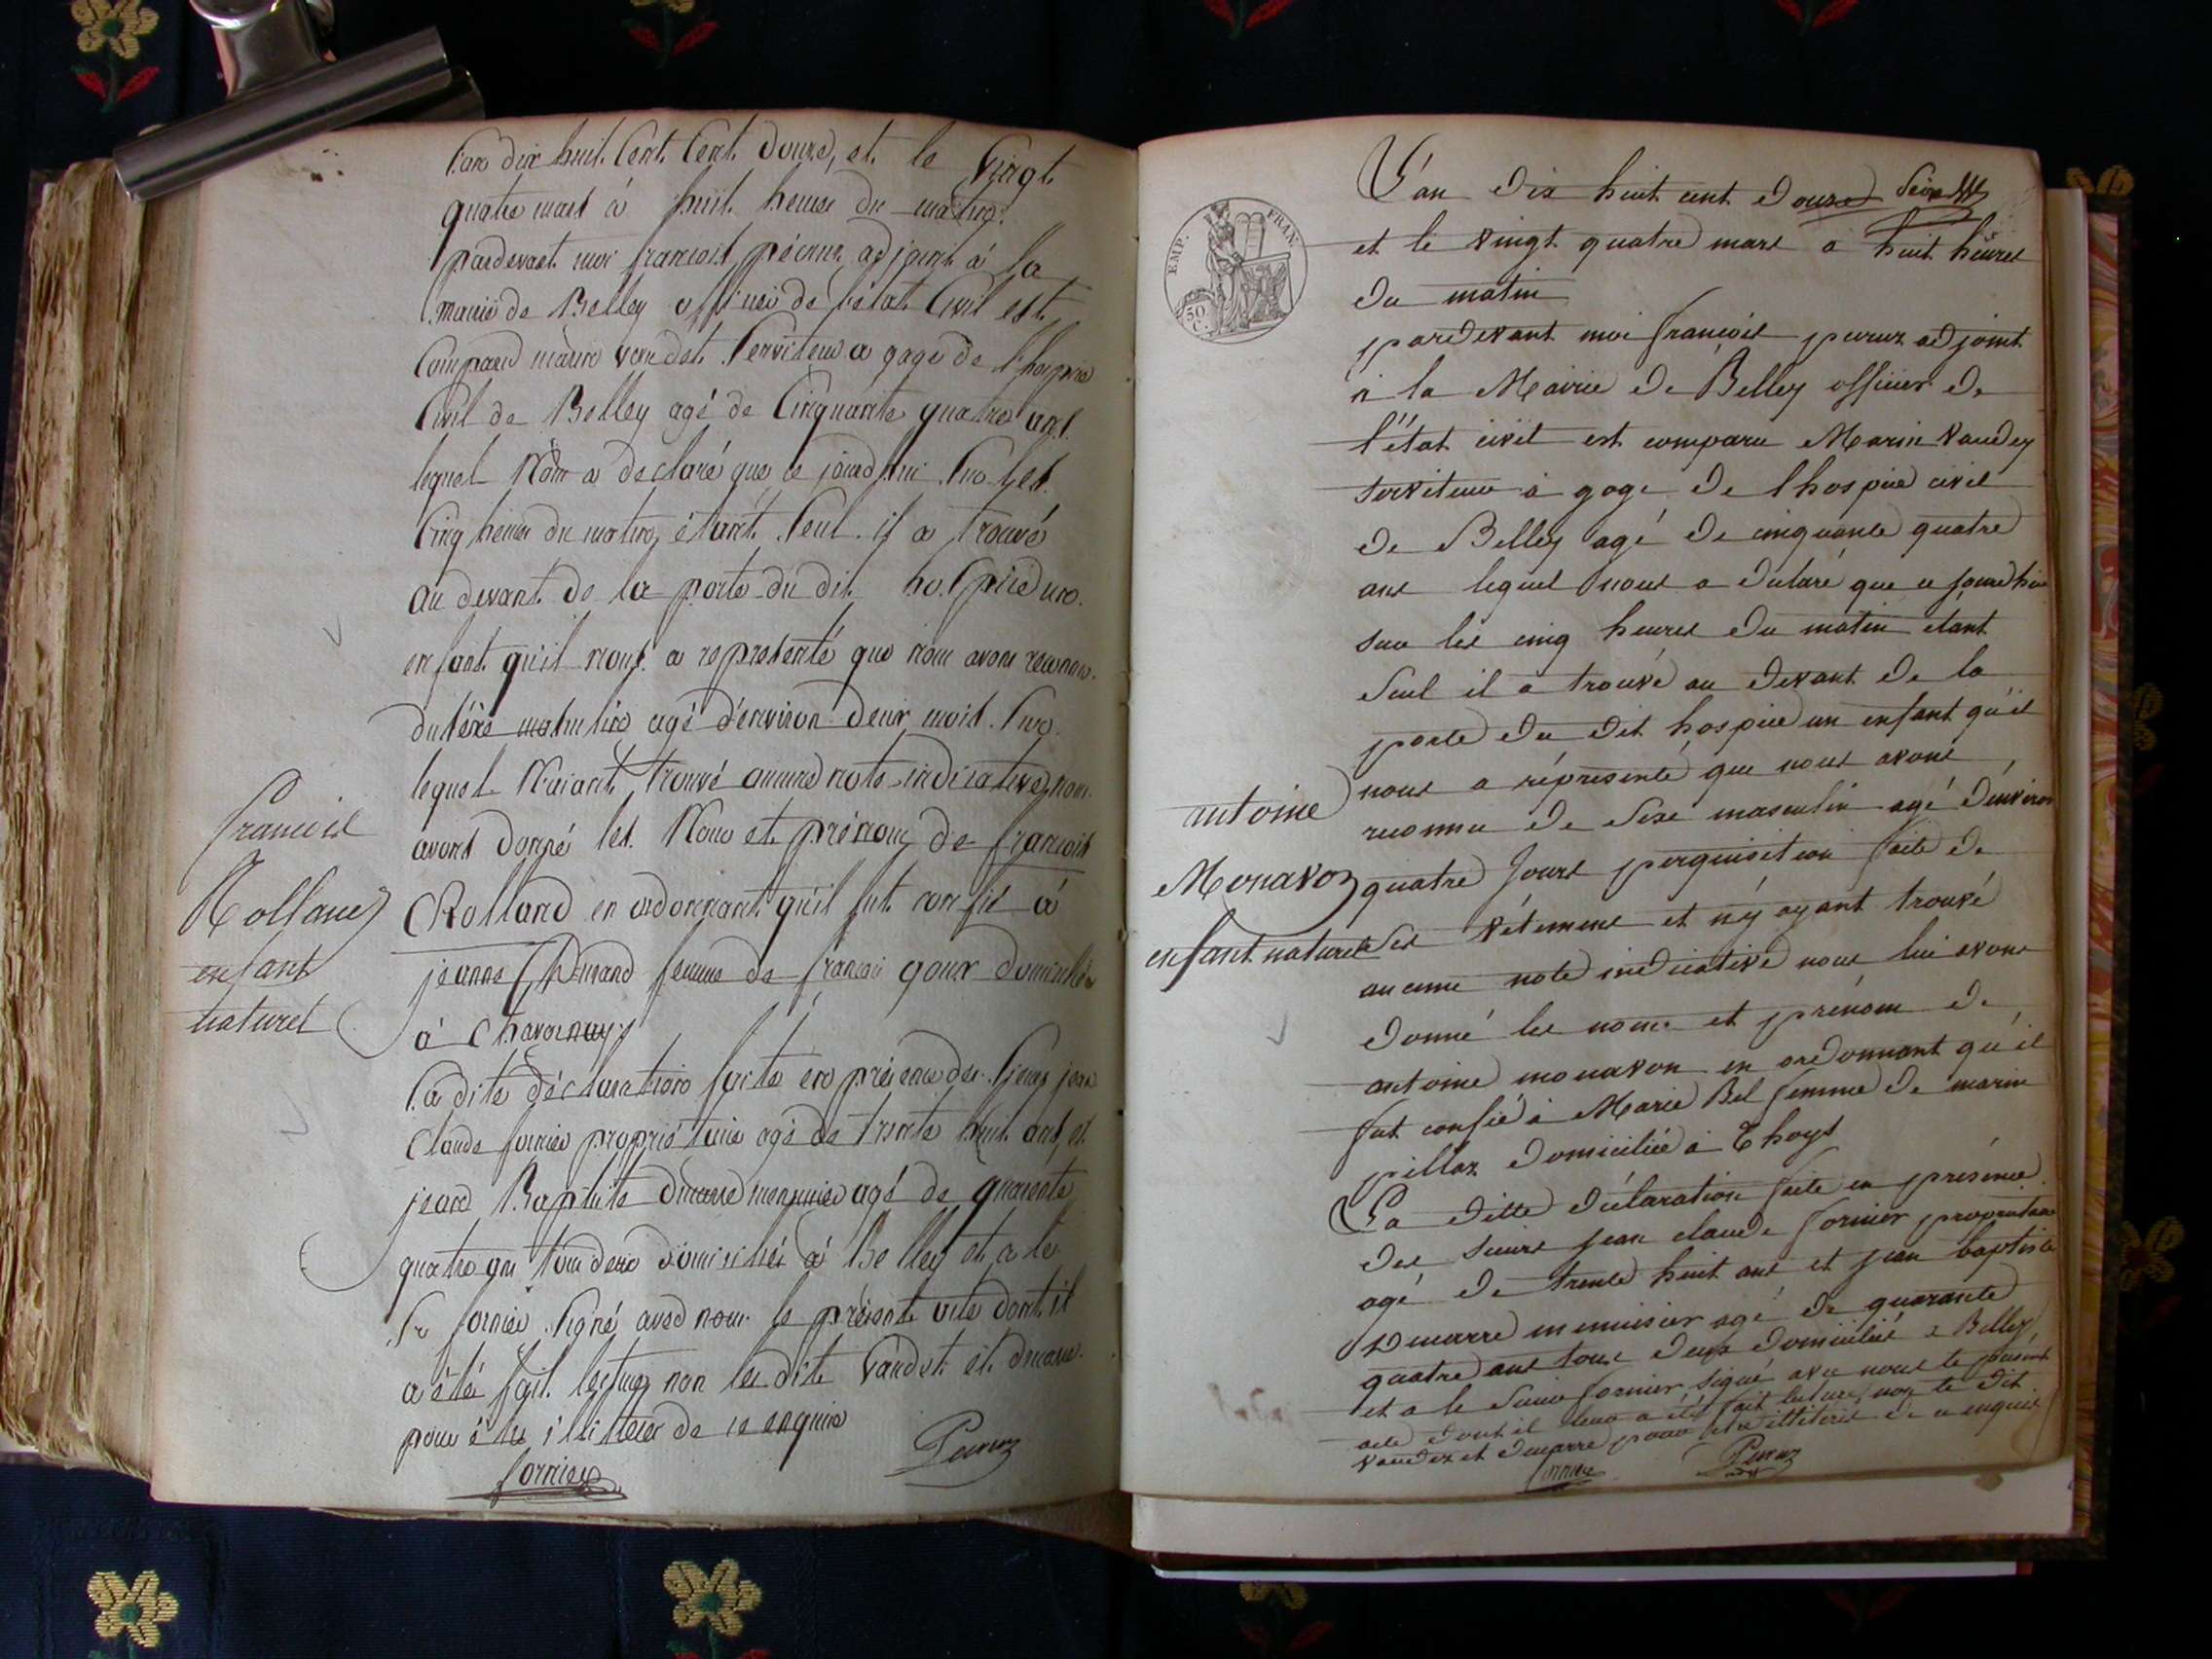 L'an dix huit Cent Cent douze, et le Vingt
quatre mars à huit heures du matin.
pardevant moi francois péciuz adjoint à la
mairie de Belley officier de l'état Civil est
Comparu marin vaudet Serviteur a gage de l'hospice
Civil de Belley agé de Cinquante quatre ans
lequel Nous a declaré que ce jourd'hui Sur les
Cinq heures du matin, étant Seul il a trouvé
au devant de la porte du dit hospice un
enfant qu'il nous a représenté que nous avons reconnu
du séxe masculin agé d'environ deux mois Sur
lequel N'aiant trouvé aucune note indicative, nous
avons donné les Nom et prénom de francois
Rolland en ordonnant qu'il fut confié à
jeanne Durand femme de francois goux domiciliée
à Chavornay
La dite déclaration faite en présence des Sieurs jean
Claude fornier propriétaire agé de trente huit ans, et
jean Baptiste ducarre menuisier agé de quarante
quatre ans tous deux domiciliés à Belley et a le
Sr fornier Signé avec nous le présent acte dont il
a été fait lecture, non les dits Vaudet et ducarre
pour être illiterés de ce enquis
fornier
francois
Rolland
enfant
naturel
EMP. FRAN.
50 C.
L'an dix huit cent douze
et le vingt quatre mars a huit heures
du matin
pardevant moi francois adjoint
à la Mairie de Belley officier de
l'état civil est comparu Marin Vaudey
serviteur à gage de l'hospice civil
de Belley agé de cinquante quatre
ans lequel nous a déclaré que ce jourd'hui
sur les cinq heures du matin étant
Seul il a trouvé au devant de la
porte du dit hospice un enfant qu'il
nous a réprésenté que nous avons
reconnu de Sexe masculin agé d'environ
quatre jours perquisition faite de
Ses vétemens et n'y ayant trouvé
aucune note indicative nous lui avons
donné les noms et prénom de
antoine monavon en ordonnant qu'il
fut confié à Marie Bel femme de marin
pillaz domiciliée à Thoys
La ditte déclaration faite en présence
des Sieurs jean claude fornier propriétaire
agé de trente huit ans et jean baptiste
Ducarre menuisier agé de quarante
quatre ans tous deux domicilié a Belley
et a le Sieur fornier signé avec nous le présent
acte dont il leur a été fait lecture, non le dit
vaudez et ducarre pour etre illiteré de ce enquis
fornier
antoine
Monavoz
enfant naturel